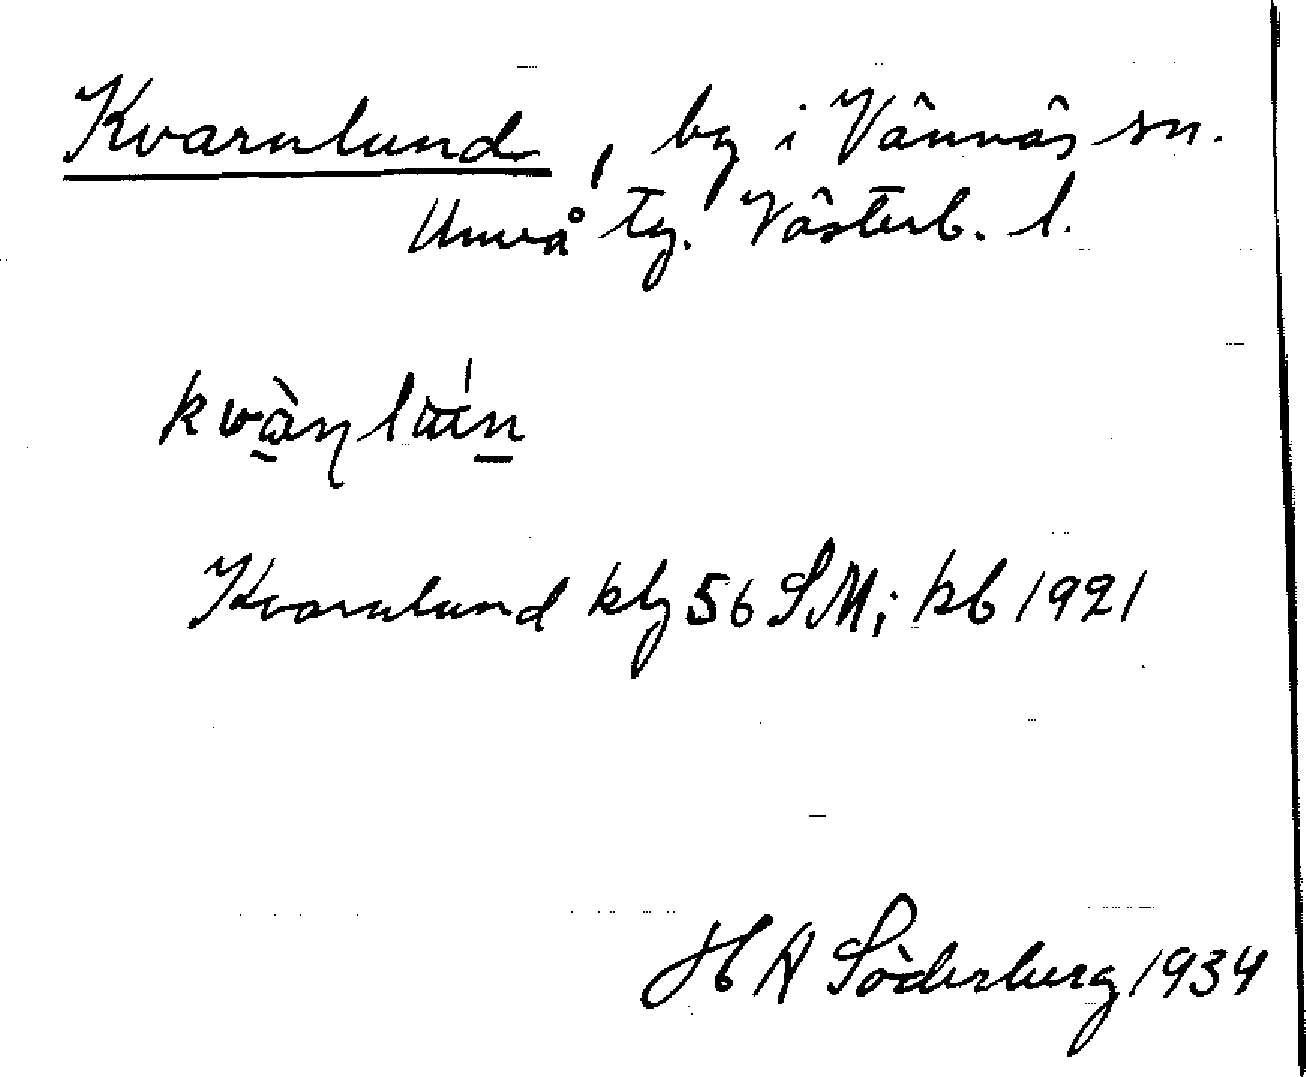 Kvarnlund, by i Vännäs sn.
Umeå tg. Västerb. l.
Kvarnlund kbg 56 SM; kb 1921
H A Söderberg 1934